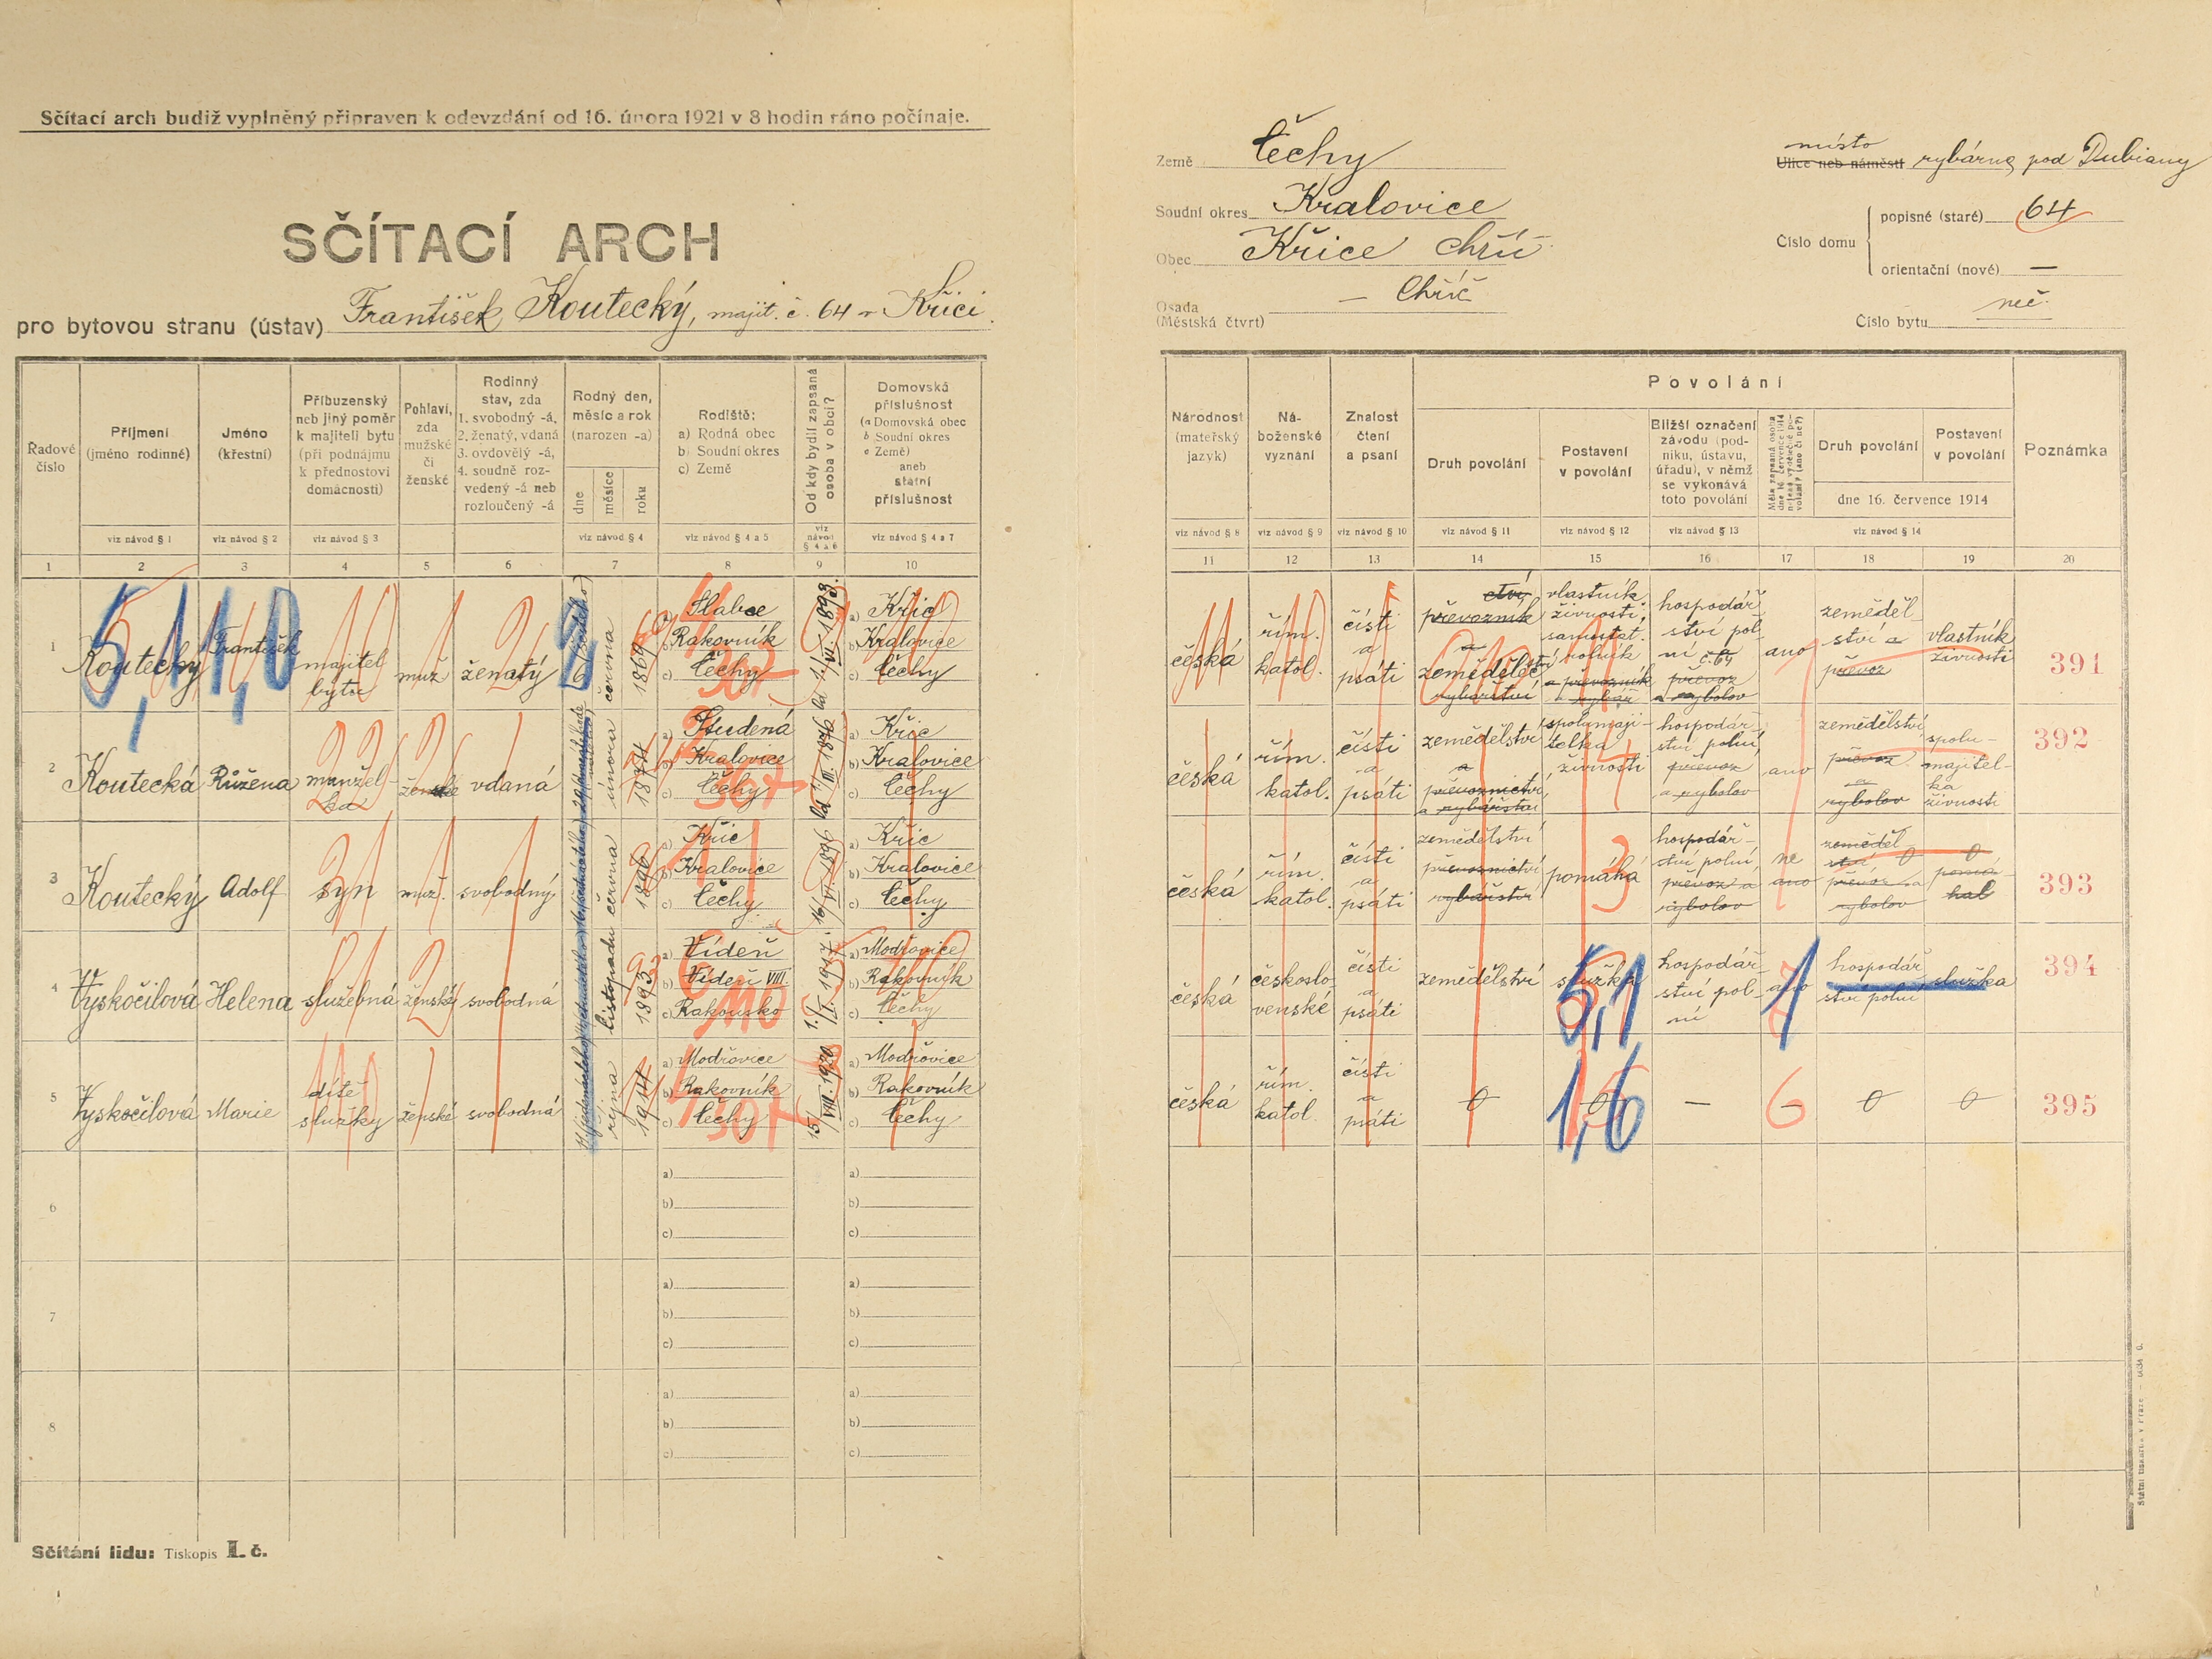 Sčítací arch budiž vyplněný připraven k odevzdání od 16. února 1921 v 8 hodin ráno počínaje.
SČÍTACÍ ARCH
pro bytovou stranu (ústav) František Koutecký, majit. č. 64 v Kříci.
Země Čechy
Soudní okres Kralovice
Obec Křice Chříč
Osada (Městská čtvrt) — Chříč
místo
Ulice neb náměstí rybárna pod Dubiany
Číslo domu
popisné (staré) 64
orientační (nové) —
Číslo bytu neč.
Řadové číslo
Příjmení (jméno rodinné)
Jméno (křestní)
Příbuzenský neb jiný poměr k majiteli bytu (při podnájmu k přednostovi domácnosti)
Pohlaví, zda mužské či ženské
Rodinný stav, zda 1. svobodný -á, 2. ženatý, vdaná 3. ovdovělý -á, 4. soudně rozvedený -á neb rozloučený -á
Rodný den, měsíc a rok (narozen -a)
dne
měsíce
roku
Rodiště:
a) Rodná obec
b) Soudní okres
c) Země
Od kdy bydlí zapsaná osoba v obci?
Domovská příslušnost (a Domovská obec b Soudní okres c Země) aneb státní příslušnost
viz návod § 1
viz návod § 2
viz návod § 3
viz návod § 4
viz návod § 4 a 5
viz návod § 4 a 6
viz návod § 4 a 7
1 2 3 4 5 6 7 8 9 10
Národnost (mateřský jazyk)
Náboženské vyznání
Znalost čtení a psaní
Povolání
Druh povolání
Postavení v povolání
Bližší označení závodu (podniku, ústavu, úřadu), v němž se vykonává toto povolání
Druh povolání
Postavení v povolání
dne 16. července 1914
Poznámka
viz návod § 8
viz návod § 9
viz návod § 10
viz návod § 11
viz návod § 12
viz návod § 13
viz návod § 14
11 12 13 14 15 16 17 18 19 20
1 Koutecký František majitel bytu muž ženatý 6 (šestého) června 1869
a) Slabce
b) Rakovník
c) Čechy
a) Kříc
b) Kralovice
c) Čechy
česká řím. katol. čísti a psáti
převozník a zemědělectví rybářství
vlastník živnosti, samostat. rolník a převozník a rybář
hospodářství polní a č. 64 převoz a rybolov
ano
zemědělství a převoz
vlastník živnosti
391
2 Koutecká Růžena manželka ženské vdaná února 1874
a) Studená
b) Kralovice
c) Čechy
Od 1/III. 1896
a) Kříc
b) Kralovice
c) Čechy
česká řím. katol. čísti a psáti
zemědělství a převoznictví, a rybářství
spolumajitelka živnosti
hospodářství polní, převoz a rybolov
ano
zemědělství, převoz a rybolov
spolumajitelka živnosti
392
3 Koutecký Adolf syn muž. svobodný června 1896
a) Kříc
b) Kralovice
c) Čechy
16/VI. 1896
a) Kříc
b) Kralovice
c) Čechy
česká řím. katol. čísti a psáti
zemědělství převoznictví rybářství
pomáhá
hospodářství polní, převoz a rybolov
ne ano
zemědělství 0 převoz a rybolov
0 pomáhal
393
4 Vyskočilová Helena služebná ženská svobodná listopadu 1893
a) Vídeň
b) Vídeň VIII.
c) Rakousko
1./I. 1917.
a) Modřovice
b) Rakovník
c) Čechy
česká československé čísti a psáti
zemědělství
služka
hospodářství polní
ano
hospodářství polní
služka
394
5 Vyskočilová Marie dítě služky ženské svobodná října 1914
a) Modřovice
b) Rakovník
c) Čechy
15/VIII. 1920
a) Modřovice
b) Rakovník
c) Čechy
česká řím. katol. čísti a psáti
0 0 — – 0 0
395
6
a) a)
b) b)
c) c)
7
a) a)
b) b)
c) c)
8
a) a)
b) b)
c) c)
5,1 1,0
5,1
1
1,6
6
Sčítání lidu: Tiskopis I. č.